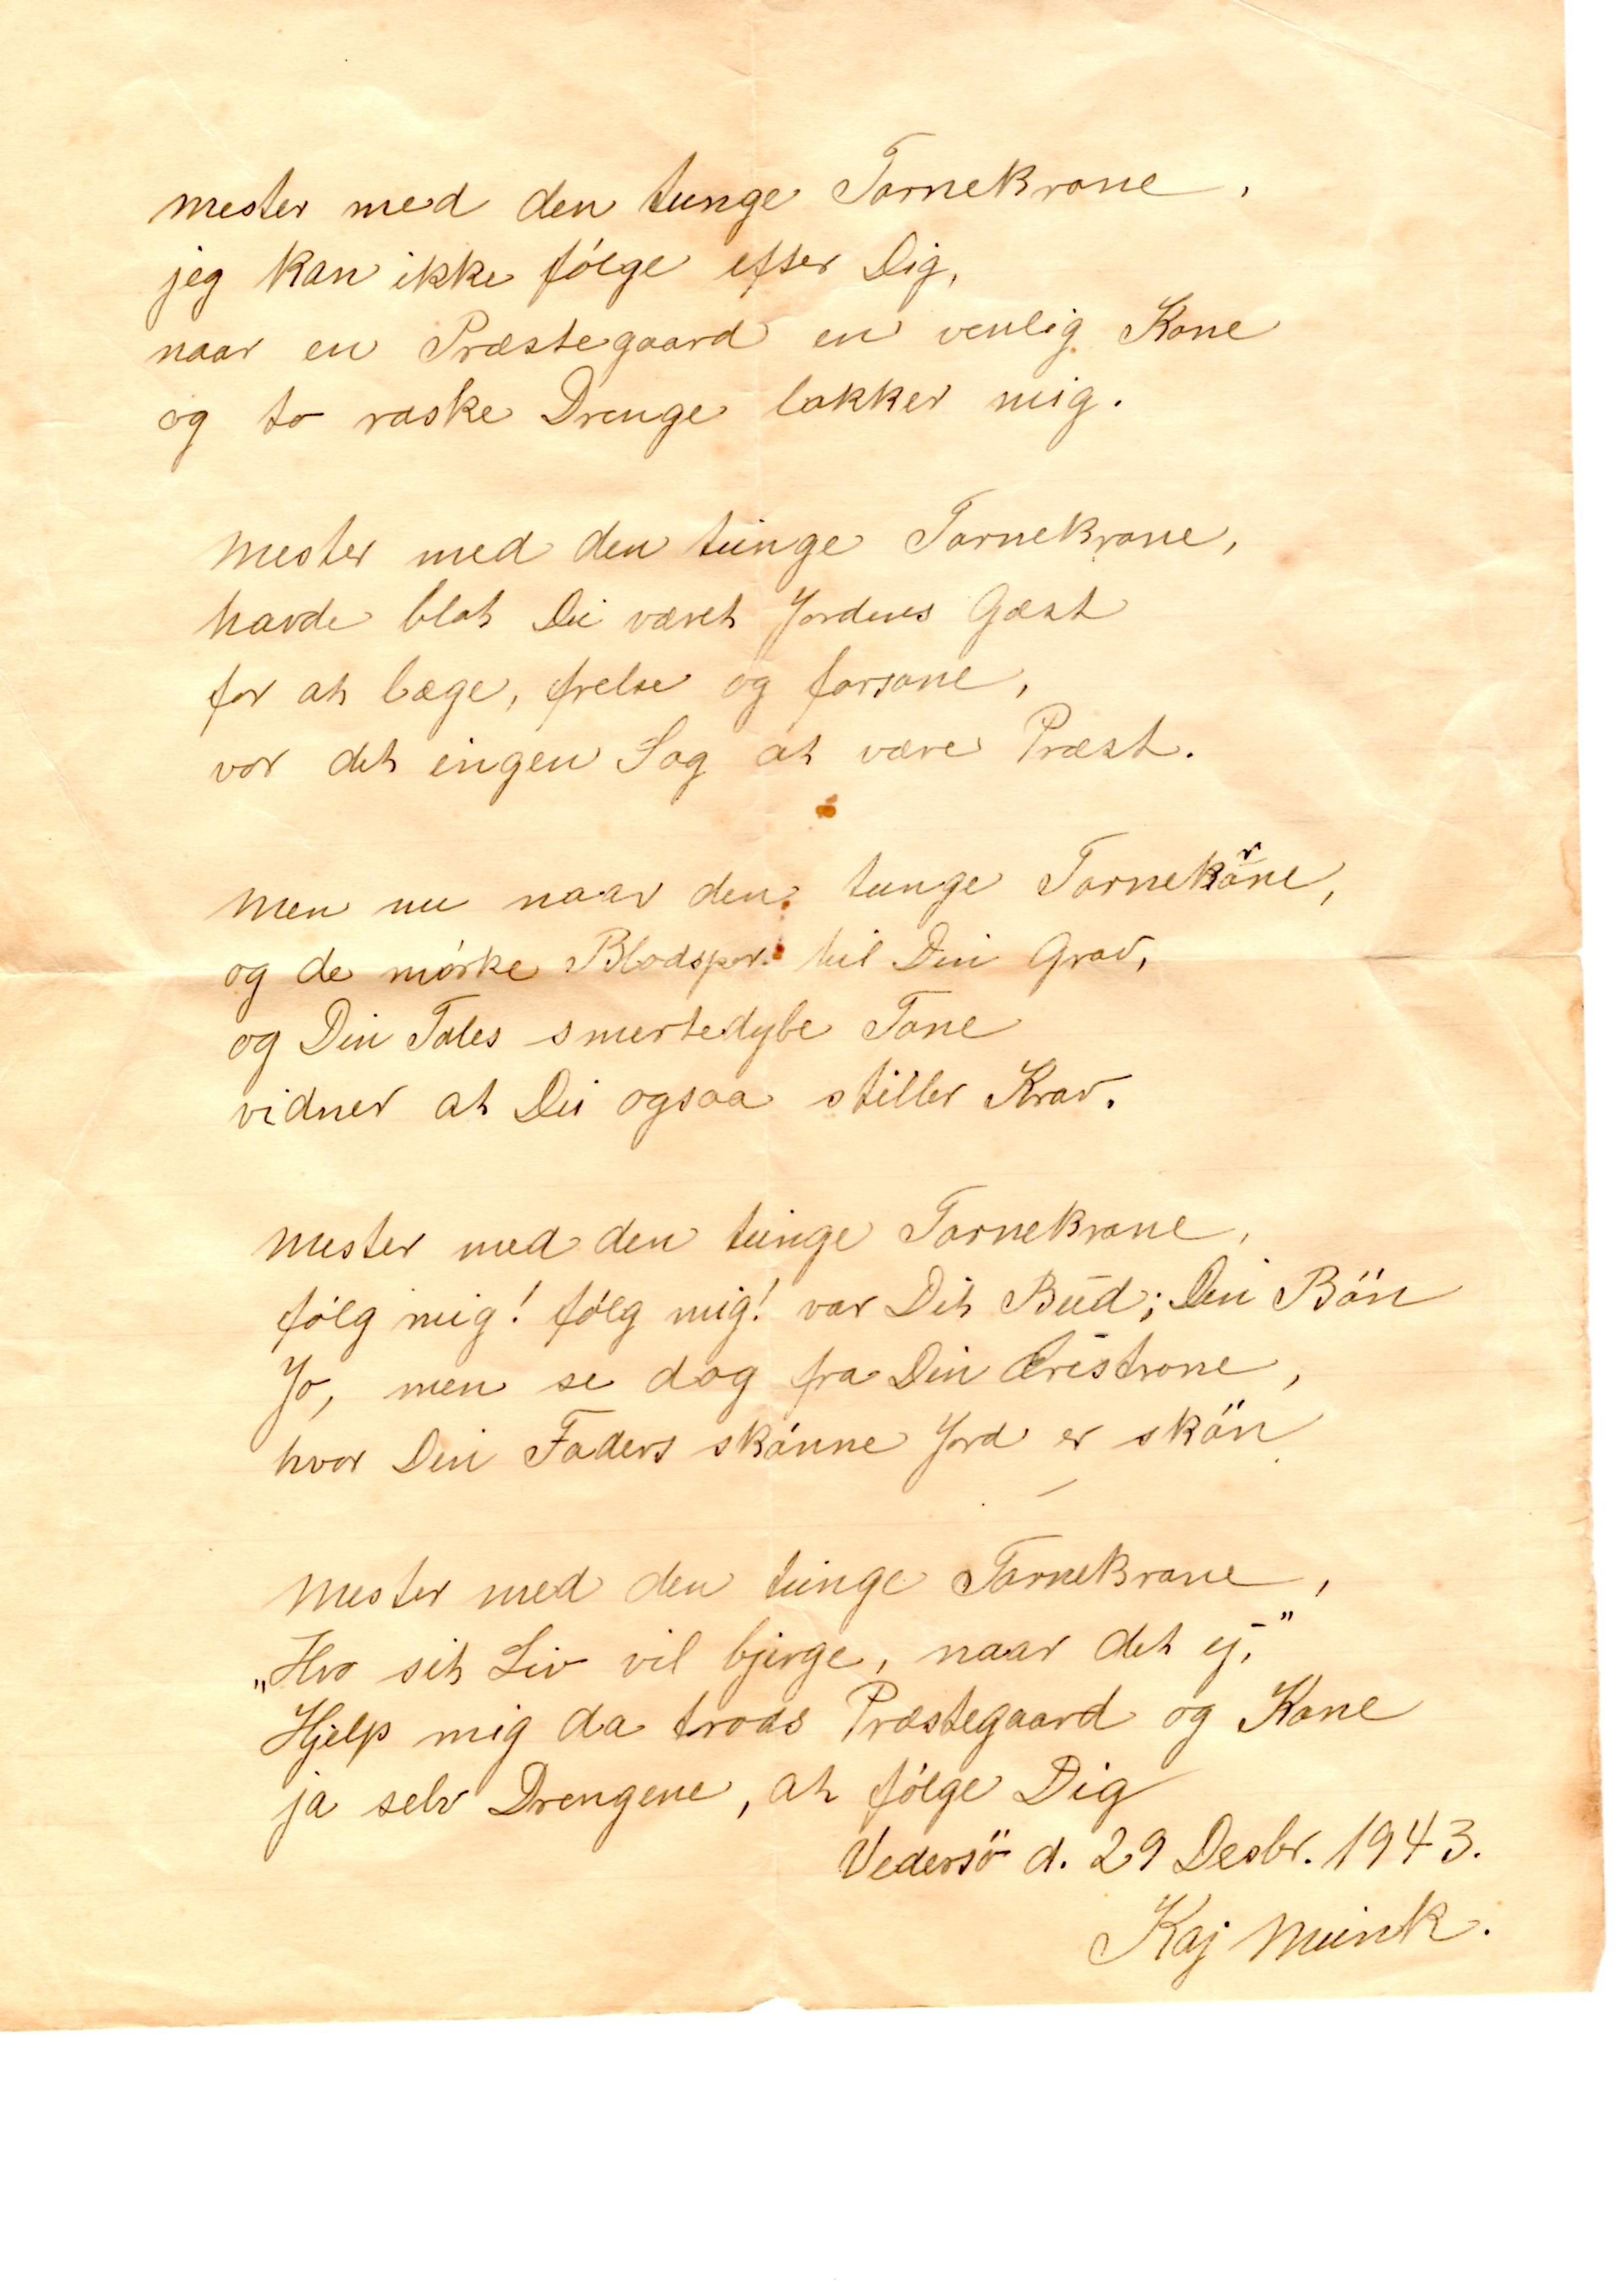 Mester med den tunge Tornekrone,
jeg kan ikke følge efter Dig,
naar en Præstegaard en venlig Kone
og to raske Drenge lokker mig.
Mester med den tunge Tornekrone,
havde blot Du været Jordens Gæst
for at læge, frelse og forsone,
var det ingen Sag at være Præst.
Men nu naar den tunge Tornekrone,
og de mørke Blodspor til Din Grav,
og Din Tales smertedybe Tone
vidner at Du ogsaa stiller Krav.
Mester med den tunge Tornekrone,
følg mig! følg mig! var Dit Bud; Din Bön
Jo, men se dog fra Din Ærestrone,
hvor Din Faders skønne Jord er skön
Mester med den tunge Tornekrone,
„Hvo sit Liv vil bjerge, naar det ej,"
Hjelp mig da trods Præstegaard og Kone
ja selv Drengene, at følge Dig
Vedersö d. 29 Desbr. 1943.
Kaj Munk.